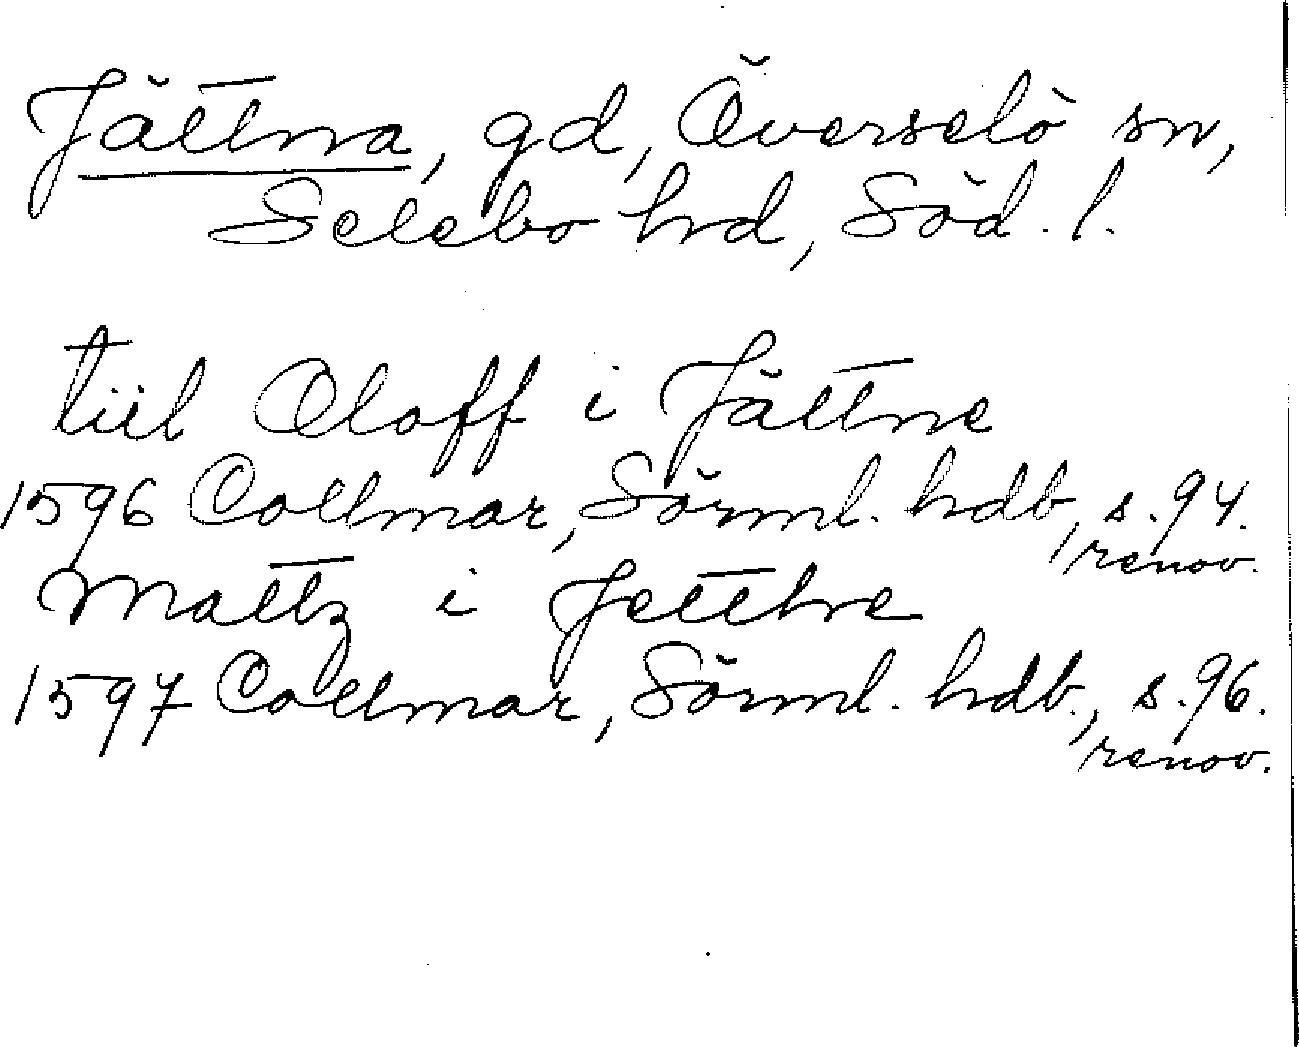 Jättna, gd, Överselö sn,
Selebo hd, Söd. l.
tiil Oloff i Jättne
1596 Collmar, Sörml. hdb, s. 94.
renov.
Mattz i Jettne
1597 Collmar, Sörml. hdb., s. 96.
renov.